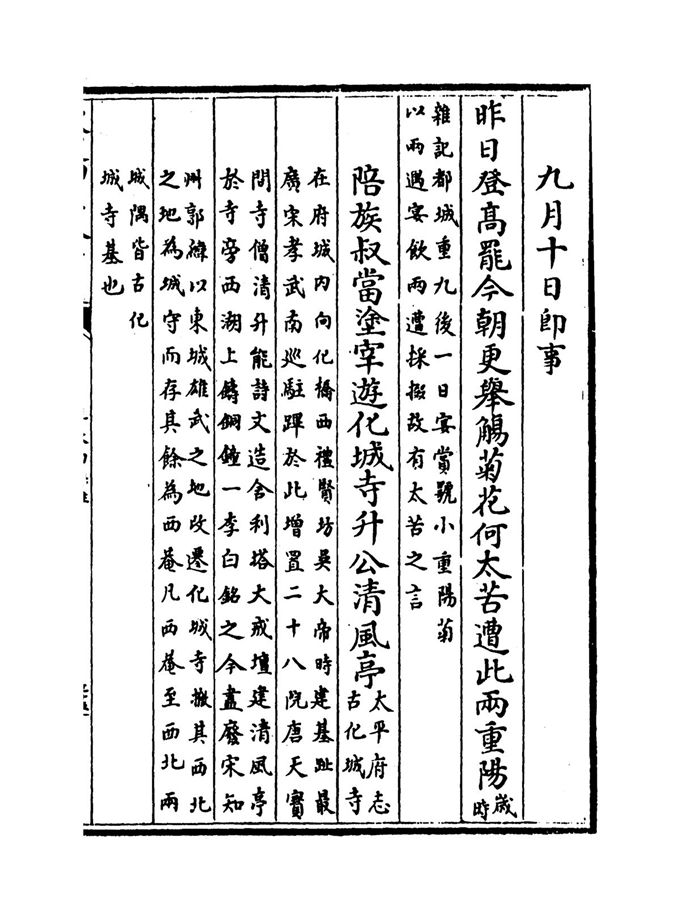 九月十日即事
昨日登高罷今朝更舉觴菊花何太苦遭此兩重陽歲時
雜記都城重九後一日宴賞號小重陽菊
以兩遇宴飲兩遭採掇故有太苦之言
陪族叔當塗宰遊化城寺升公清風亭太平府志
古化城寺
在府城内向化橋西禮賢坊吳大帝時建基趾最
廣宋孝武南巡駐蹕於此增置二十八院唐天寳
間寺僧清升能詩文造舍利塔大戒壇建清風亭
於寺旁西湖上鑄銅鐘一李白銘之今盡廢宋知
州郭緯以東城雄武之地改遷化城寺撤其西北
之地為城守而存其餘為西菴凡西菴至西北兩
城隅皆古化
城寺基也